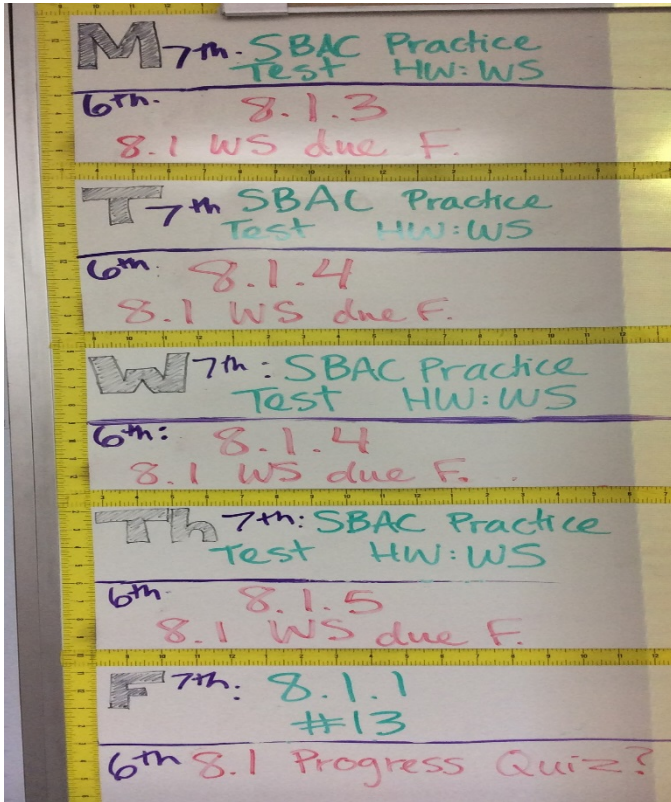 M 7th. SBAC Practice
Test HW: WS
6th. 8.1.3
8.1 WS due F.
T 7th SBAC Practice
Test HW: WS
6th: 8.1.4
8.1 WS due F.
W 7th: SBAC Practice
Test HW: WS
6th: 8.1.4
8.1 WS due F.
Th 7th: SBAC Practice
Test HW: WS
6th. 8.1.5
8.1 WS due F.
F 7th: 8.1.1
#13
6th 8.1 Progress Quiz?